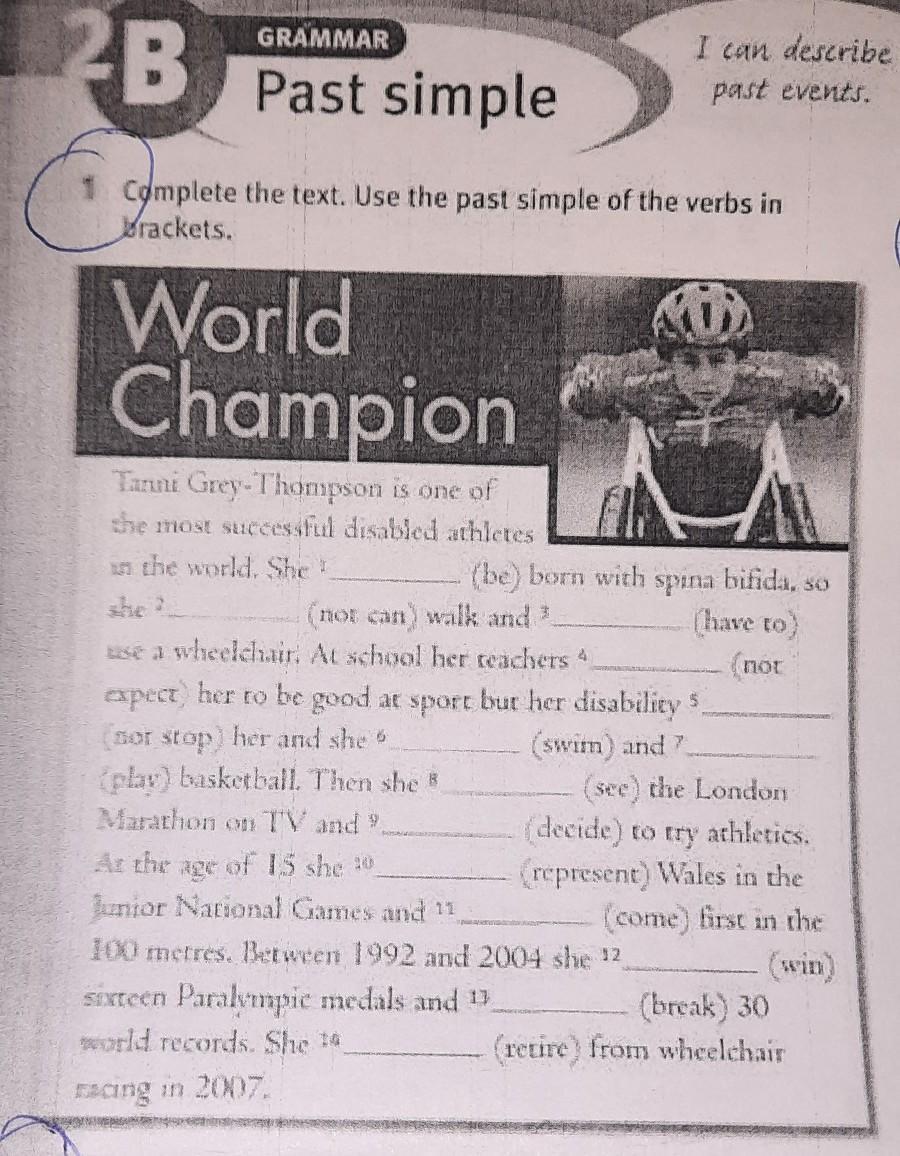 2B GRAMMAR
Past simple
I can describe
past events.
1 Complete the text. Use the past simple of the verbs in
brackets.
World
Champion
Tanni Grey-Thompson is one of
the most successful disabled athletes
in the world. She 1__________ (be) born with spina bifida, so
she 2__________ (not can) walk and 3__________ (have to)
use a wheelchair. At school her teachers 4__________ (not
expect) her to be good at sport but her disability 5__________
(not stop) her and she 6__________ (swim) and 7__________
(play) basketball. Then she 8__________ (see) the London
Marathon on TV and 9__________ (decide) to try athletics.
At the age of 15 she 10__________ (represent) Wales in the
Junior National Games and 11__________ (come) first in the
100 metres. Between 1992 and 2004 she 12__________ (win)
sixteen Paralympic medals and 13__________ (break) 30
world records. She 14__________ (retire) from wheelchair
racing in 2007.